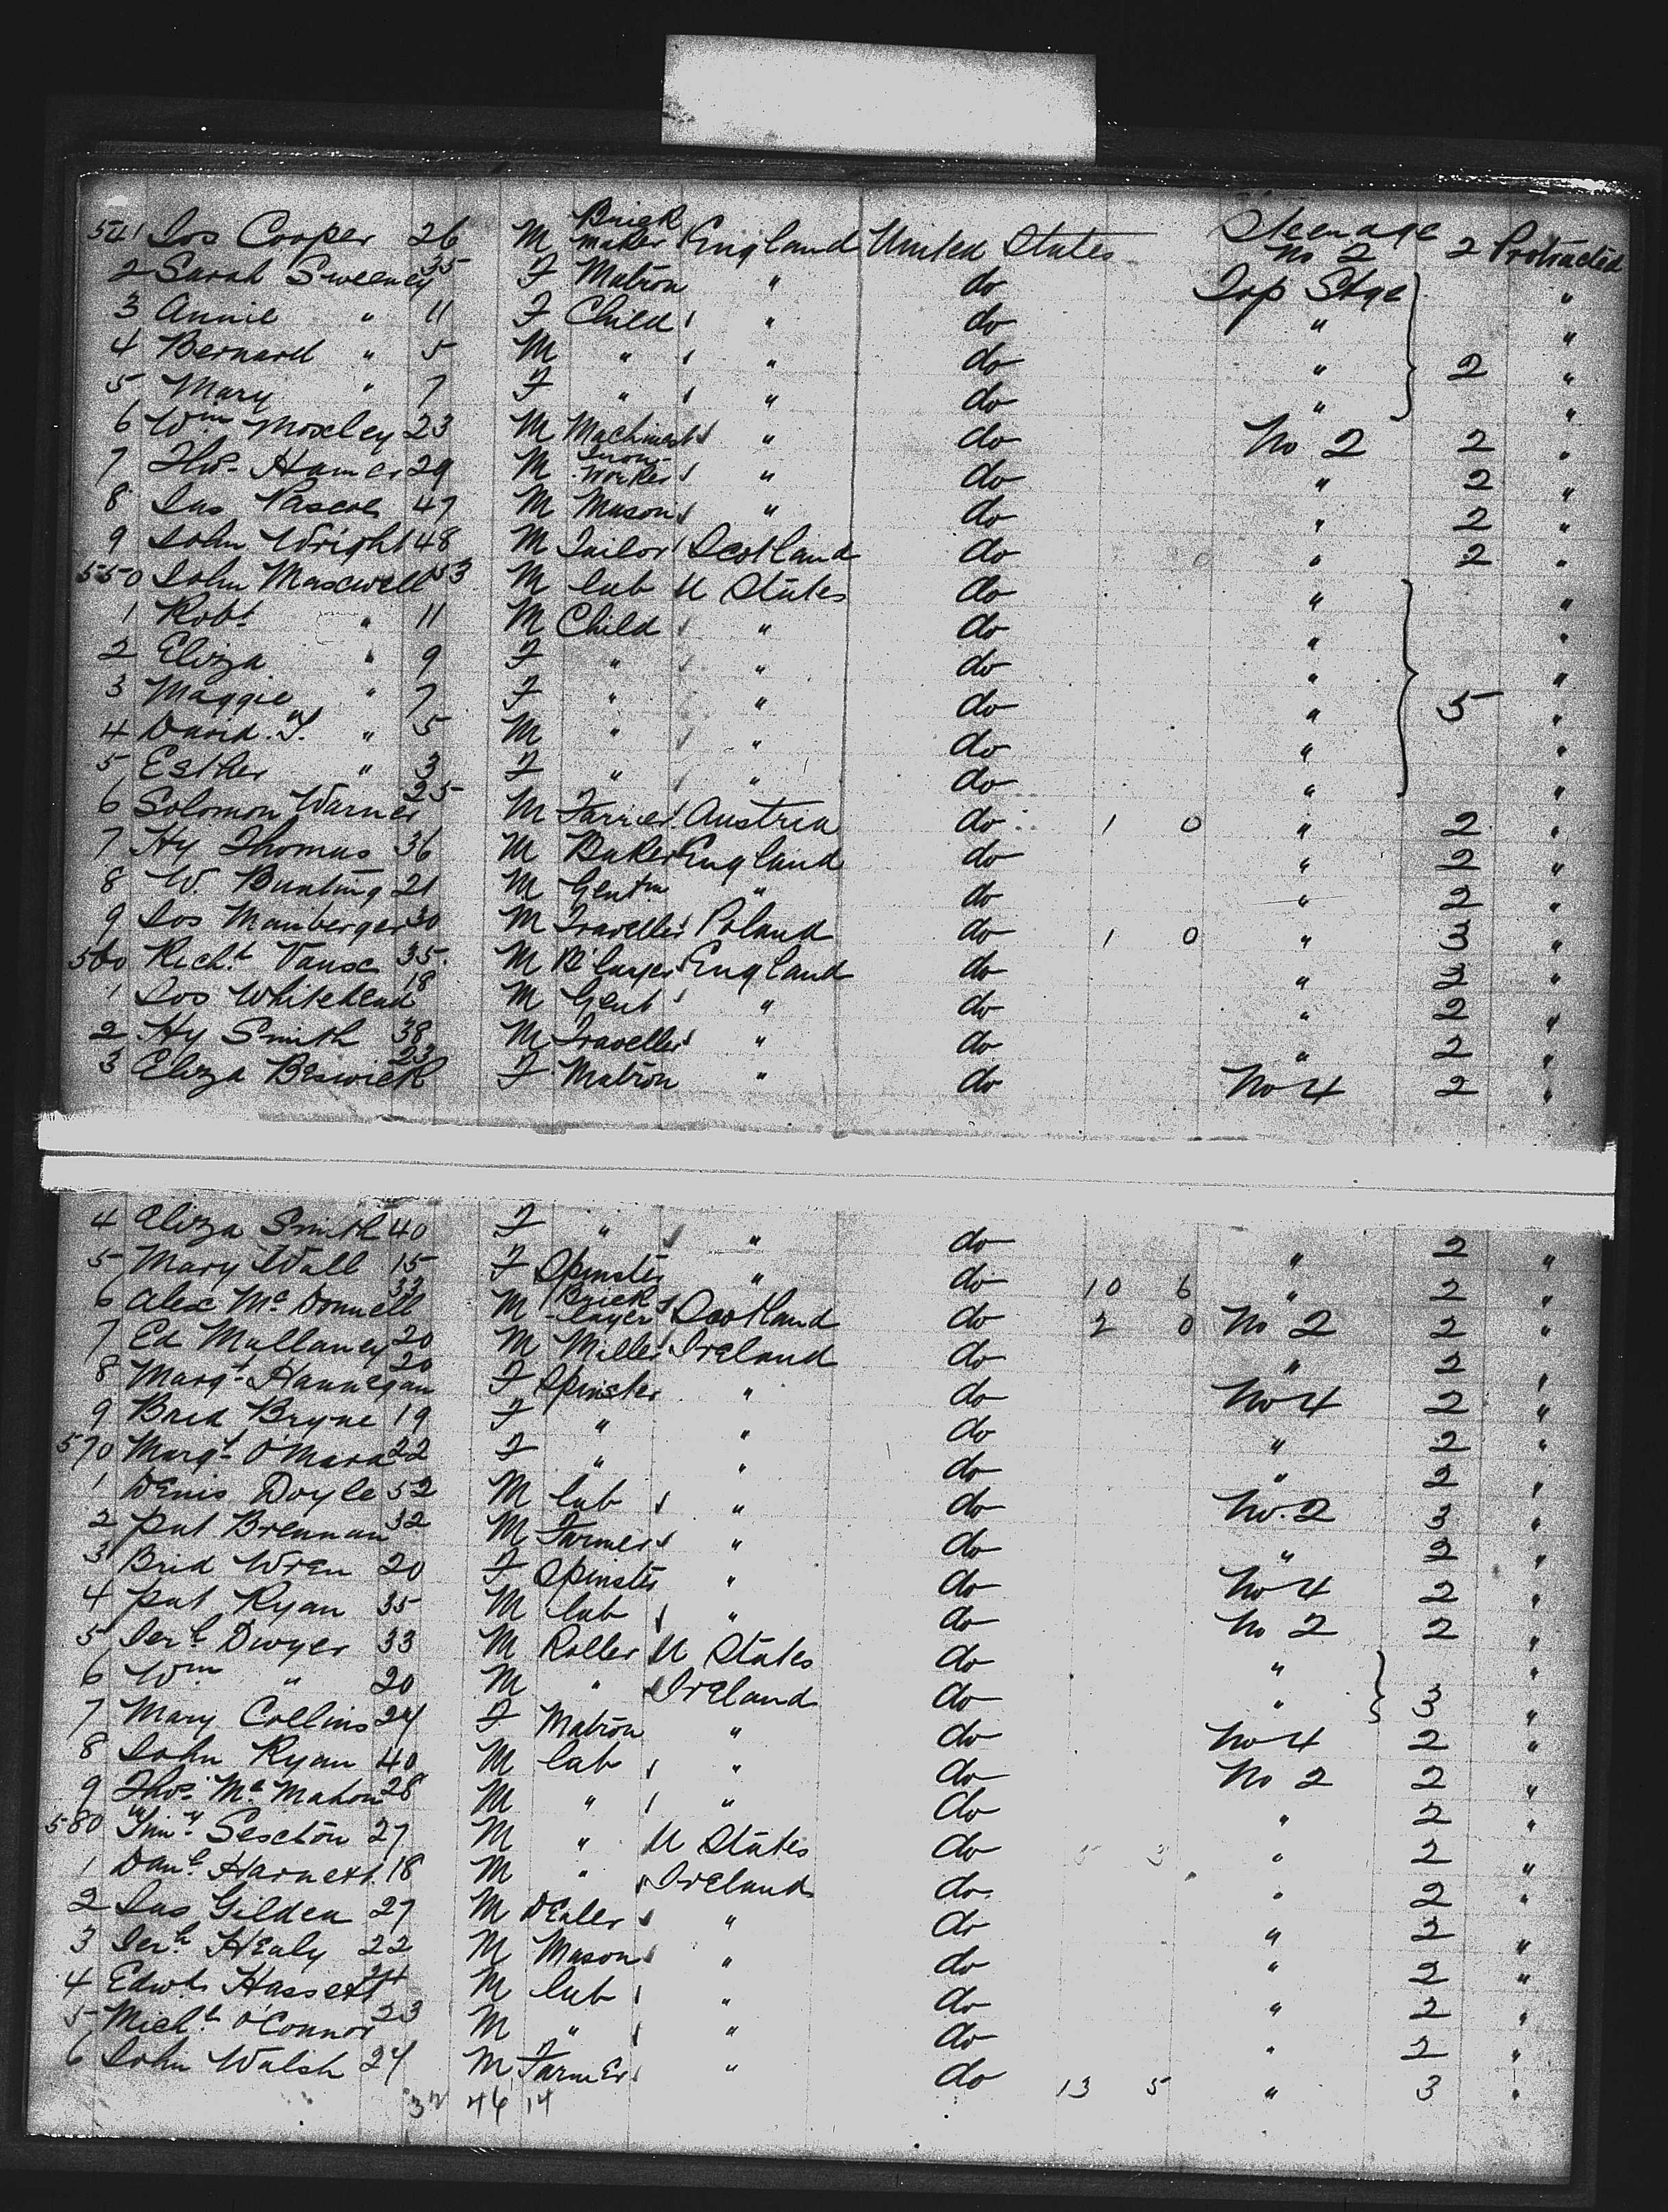 541 Jos Cooper 26 M Brick maker England United States Steerage No 2 2 Protracted
2 Sarah Sweeney 35 F Matron " do Top Stge "
3 Annie " 11 F Child " do " "
4 Bernard " 5 M " " do " 2 "
5 Mary " 7 F " " do " "
6 Wm Moxley 23 M Machinest " do No 2 2 "
7 Thos Hamer 29 M Iron-Worker " do " 2 "
8 Jas Pascoe 47 M Mason " do " 2 "
9 John Wright 48 M Tailor Scotland do " 2 "
550 John Maxwell 53 M lab U States do " "
1 Robt " 11 M Child " do " "
2 Eliza " 9 F " " do " "
3 Maggie " 7 F " " do " 5 "
4 David. T. " 5 M " " do " "
5 Esther " 3 F " " do " "
6 Solomon Warner 25 M Farrier Austria do 1 0 " 2 "
7 Hy Thomas 36 M Baker England do " 2 "
8 W. Bunting 21 M Gentm " do " 2 "
9 Jos Mamberger 30 M Traveller Poland do 1 0 " 3 "
560 Richt Vaux 35. M B'layer England do " 2 "
1 Jos Whitehead 18 M Gent " do " 2 "
2 Hy Smith 38 M Traveller " do " 2 "
3 Eliza Beswick 23 F Matron " do No 4 2 "
4 Eliza Smith 40 F " " do " 2 "
5 Mary Wall 15 F Spinster " do 10 6 " 2 "
6 Alex McDonnell 33 M Brick-layer Scotland do 2 0 No 2 2 "
7 Ed Mullaney 20 M Miller Ireland do " 2 "
8 Margt Hannegan 20 F Spinster " do No 4 2 "
9 Brid Bryne 19 F " " do " 2 "
570 Margt O'Mara 22 F " " do " 2 "
1 Denis Doyle 52 M lab " do No. 2 3 "
2 Pat Brennan 32 M Farmer " do " 2 "
3 Brid Wren 20 F Spinster " do No 4 2 "
4 Pat Ryan 35 M lab " do No 2 2 "
5 Jerh Dwyer 33 M Roller U States do " "
6 Wm " 20 M " Ireland do " 3 "
7 Mary Collins 24 F Matron " do No 4 2 "
8 John Ryan 40 M lab " do No 2 2 "
9 Thos McMahon 28 M " " do " 2 "
580 Timy Sexton 27 M " U States do 5 3 " 2 "
1 Danl Harnett 18 M " Ireland do. " 2 "
2 Jas Gilden 27 M Dealer " do " 2 "
3 Jerh Healy 22 M Mason " do " 2 "
4 Edwd Hassett 24 M lab " do " 2 "
5 Michl O'Connor 23 M " " do " 2 "
6 John Walsh 24 M Farmer " do 13 5 " 3 "
32 46 14